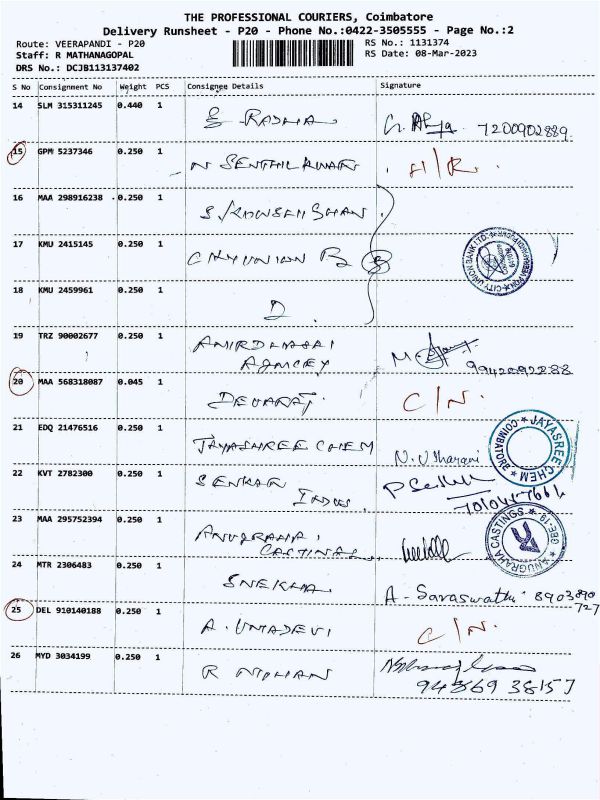 THE PROFESSIONAL COURIERS, Coimbatore
Delivery Runsheet - P20 - Phone No.:0422-3505555 - Page No.:2
Route: VEERAPANDI - P20 RS No.: 1131374
Staff: R MATHANAGOPAL RS Date: 08-Mar-2023
DRS No.: DCJB113137402
S No Consignment No Weight PCS Consignee Details Signature
14 SLM 315311245 0.440 1 RADHA 7200902889
15 GPM 5237346 0.250 1 N SENTHIL KUMAR
16 MAA 298916238 0.250 1 S
17 KMU 2415145 0.250 1 CITY UNION B CITY UNION BANK LTD.
18 KMU 2459961 0.250 1 D
19 TRZ 90002677 0.250 1
AGENCEY
20 MAA 568318087 0.045 1 DEVARAJ C/N.
21 EDQ 21476516 0.250 1 JAYASHREE CHEM JAYASREE CHEM COIMBATORE
22 KVT 2782300 0.250 1
INDUS
23 MAA 295752394 0.250 1 ANUGRAHA ANUGRAHA CASTINGS
CASTINGS
24 MTR 2306483 0.250 1 SNEKHA A - Saraswathi 8903890
727
25 DEL 910140188 0.250 1 A. UMADEVI C/N.
26 MYD 3034199 0.250 1 R MOHAN
94869 38157